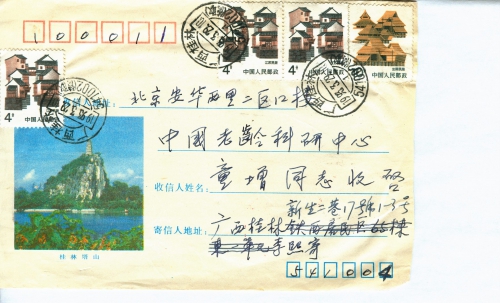 100011
4分
中国人民邮政
4分
江苏民居
中国人民邮政
4分
中国人民邮政
中国人民邮政
收信人地址:
北京安华西里二区口楼
中國老龄科研中心
收信人姓名:
童增同志收启
新生二巷17號1-3号
寄信人地址:
广西桂林
李熙寄
桂林塔山
541004